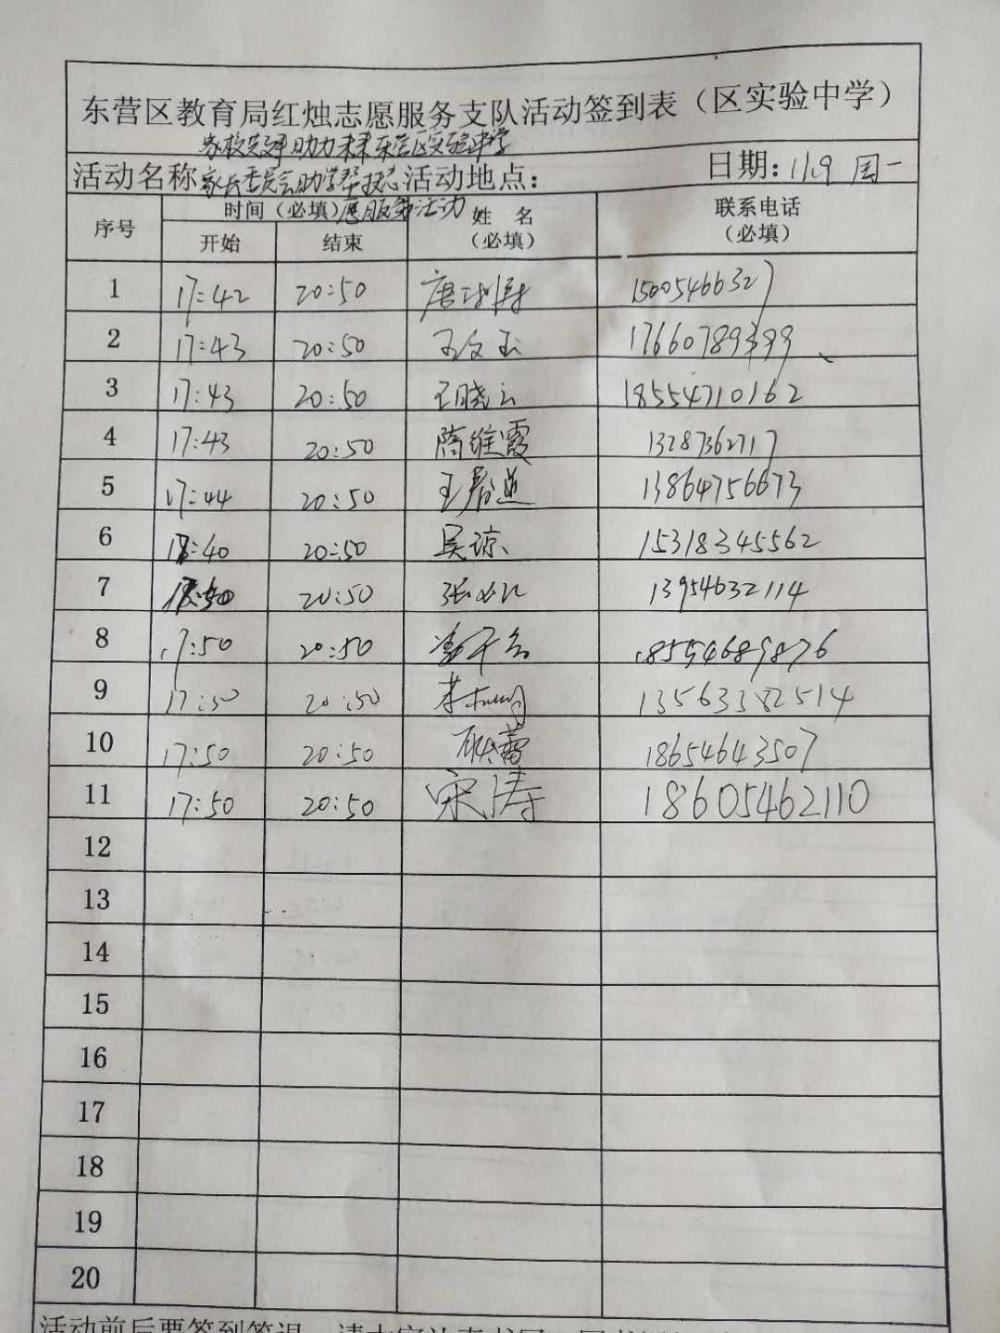 东营区教育局红烛志愿服务支队活动签到表（区实验中学）
家校 助力未来东营区实验中学
活动名称 家长委员会助学帮扶志 活动地点： 日期：11.9 周一
序号 时间（必填） 愿服务活动 姓 名 联系电话
开始 结束 （必填） （必填）
1 17:42 20:50 唐 15005466327
2 17:43 20:50 王文玉
3 17:43 20:50 王晓云 18554710162
4 17:43 20:50 隋维霞 13287362717
5 17:44 20:50 王 13864756673
6 20:50 吴琼 15318345562
7 20:50 张 13954632114
8 17:50 20:50 18554689876
9 17:50 20:50 13563382514
10 17:50 20:50 蕾 18654643507
11 17:50 20:50 宋涛 18605462110
12
13
14
15
16
17
18
19
20
活动前后要签到签退